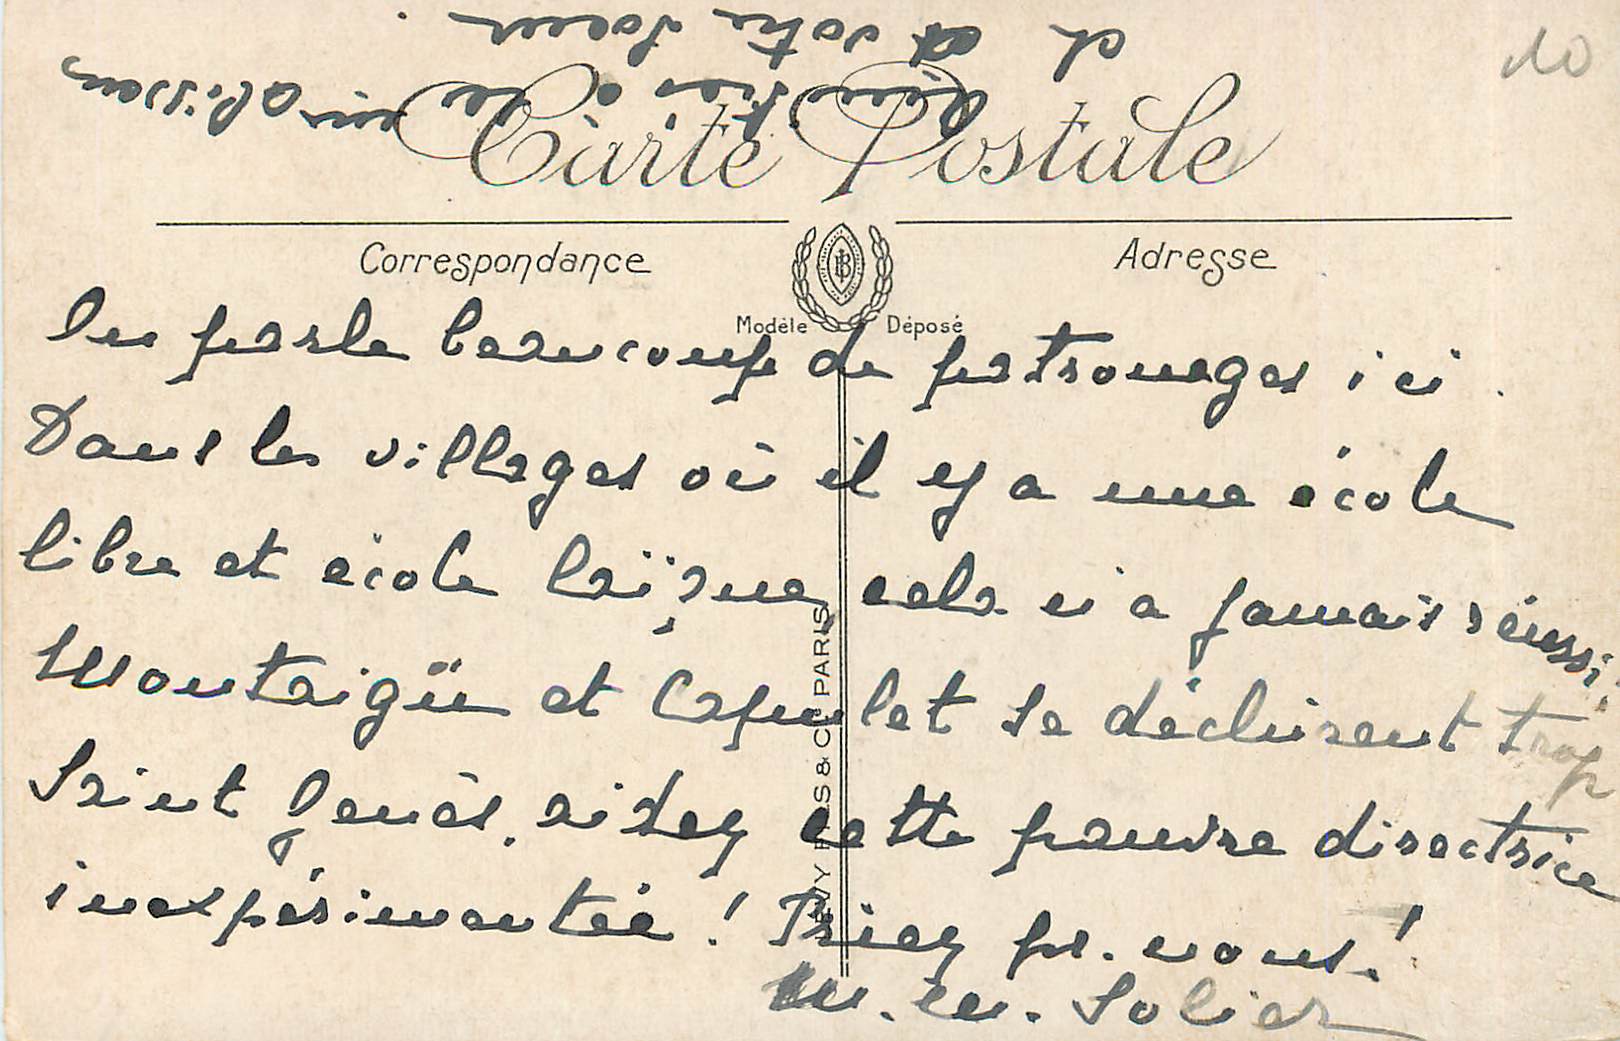 Carte Postale
Correspondance
Adresse
Modèle Déposé
On parle beaucoup de patronages ici.
Dans les villages où il y a une école
libre et école laïque, cela n'a jamais réussi.
Montaigü et Capulet se déchirent trop
Saint Genès. aidez cette pauvre directrice
inexpérimentée ! Priez pr. nous !
M. M. Solier
et votre soeur.
LEVY FILS & Cie PARIS
10